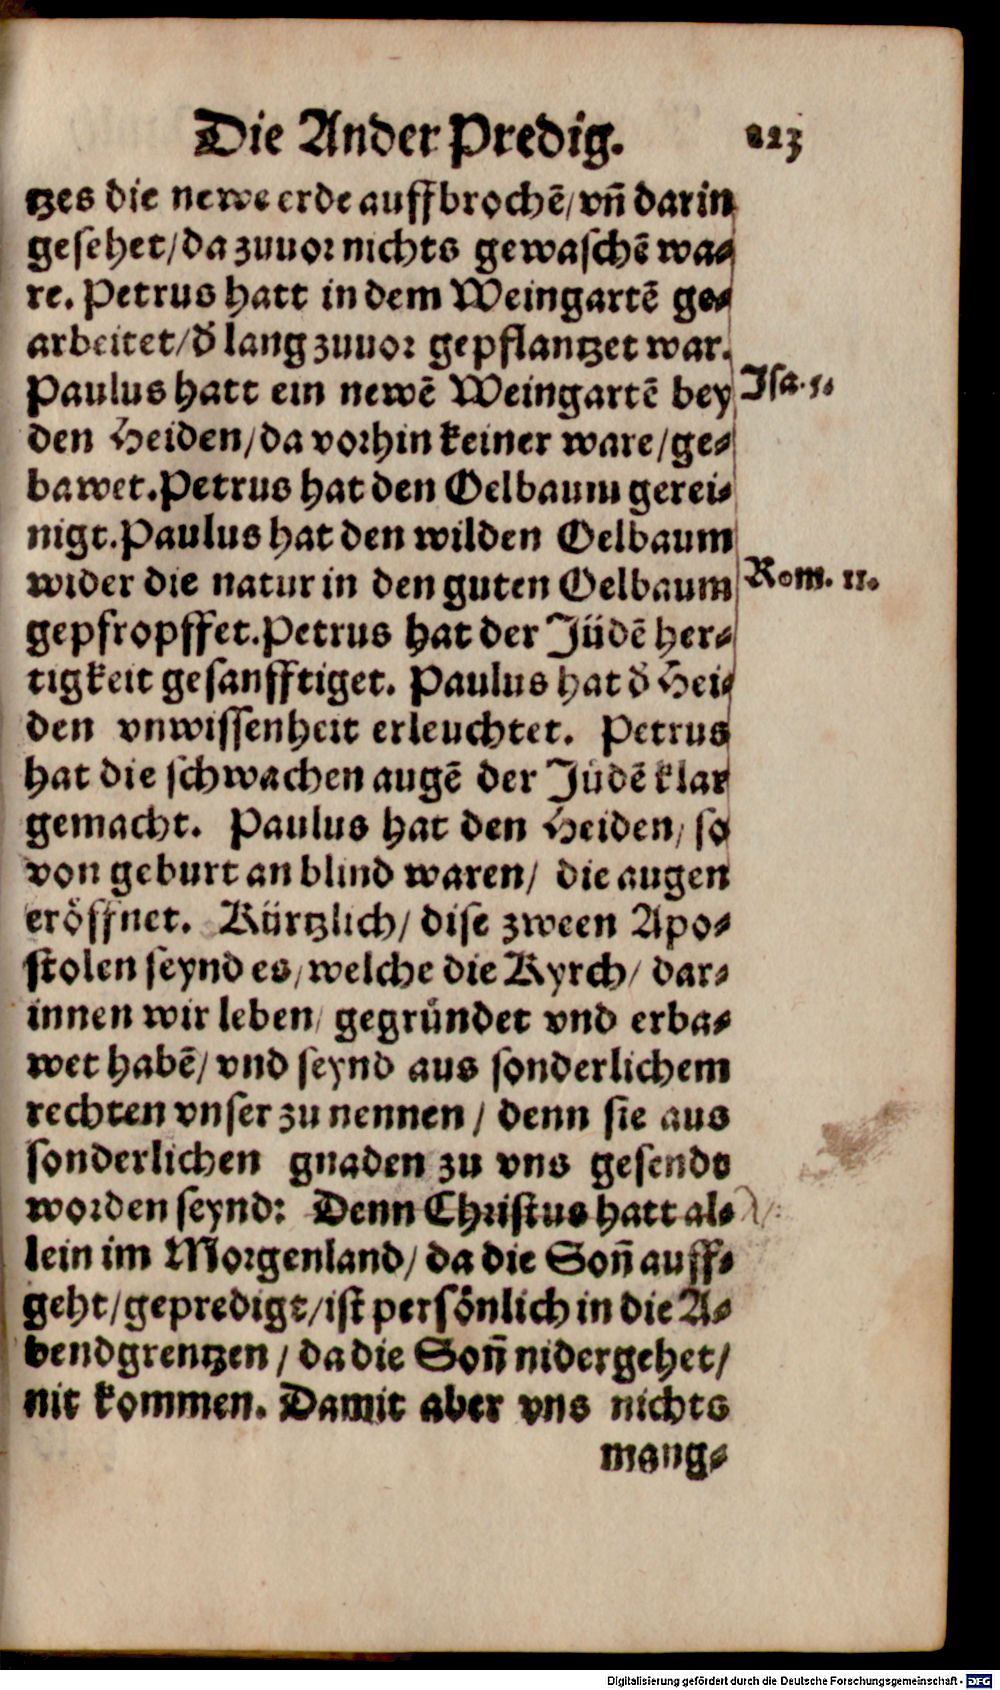 Die Ander Predig. 223
tzes die newe erde auffbrochē/ vñ darin
gesehet/ da zuuor nichts gewaschē wa⸗
re. Petrus hatt in dem Weingartē ge⸗
arbeitet/ d̄ lang zuuor gepflantzet war.
Paulus hatt ein newē Weingartē bey
Isa. 5.
den Heiden/ da vorhin keiner ware/ ge⸗
bawet. Petrus hat den Oelbaum gerei⸗
nigt. Paulus hat den wilden Oelbaum
wider die natur in den guten Oelbaum
Rom. 11.
gepfropffet. Petrus hat der Jüdē her⸗
tigkeit gesanfftiget. Paulus hat d̄ Hei⸗
den vnwissenheit erleuchtet. Petrus
hat die schwachen augē der Jüdē klar
gemacht. Paulus hat den Heiden/ so
von geburt an blind waren/ die augen
eröffnet. Kürtzlich/ dise zween Apo⸗
stolen seynd es/ welche die Kyrch/ dar⸗
innen wir leben/ gegründet vnd erba⸗
wet habē/ vnd seynd aus sonderlichem
rechten vnser zu nennen/ denn sie aus
sonderlichen gnaden zu vns gesendt
worden seynd: Denn Christus hatt al⸗
lein im Morgenland/ da die Soñ auff⸗
geht/ gepredigt/ ist persönlich in die A⸗
bendgrentzen/ da die Soñ nidergehet/
nit kommen. Damit aber vns nichts
mang⸗
Digitalisierung gefördert durch die Deutsche Forschungsgemeinschaft - DFG